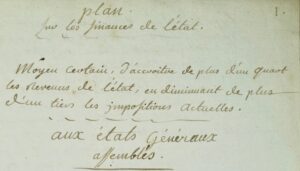 plan. 1.
sur les finances de l'état.
Moyen certain, d'accroitre de plus d'un quart
les Revenus de l'état, en diminuant de plus
d'un tiers les impositions actuelles.
aux états Généraux
assemblés.